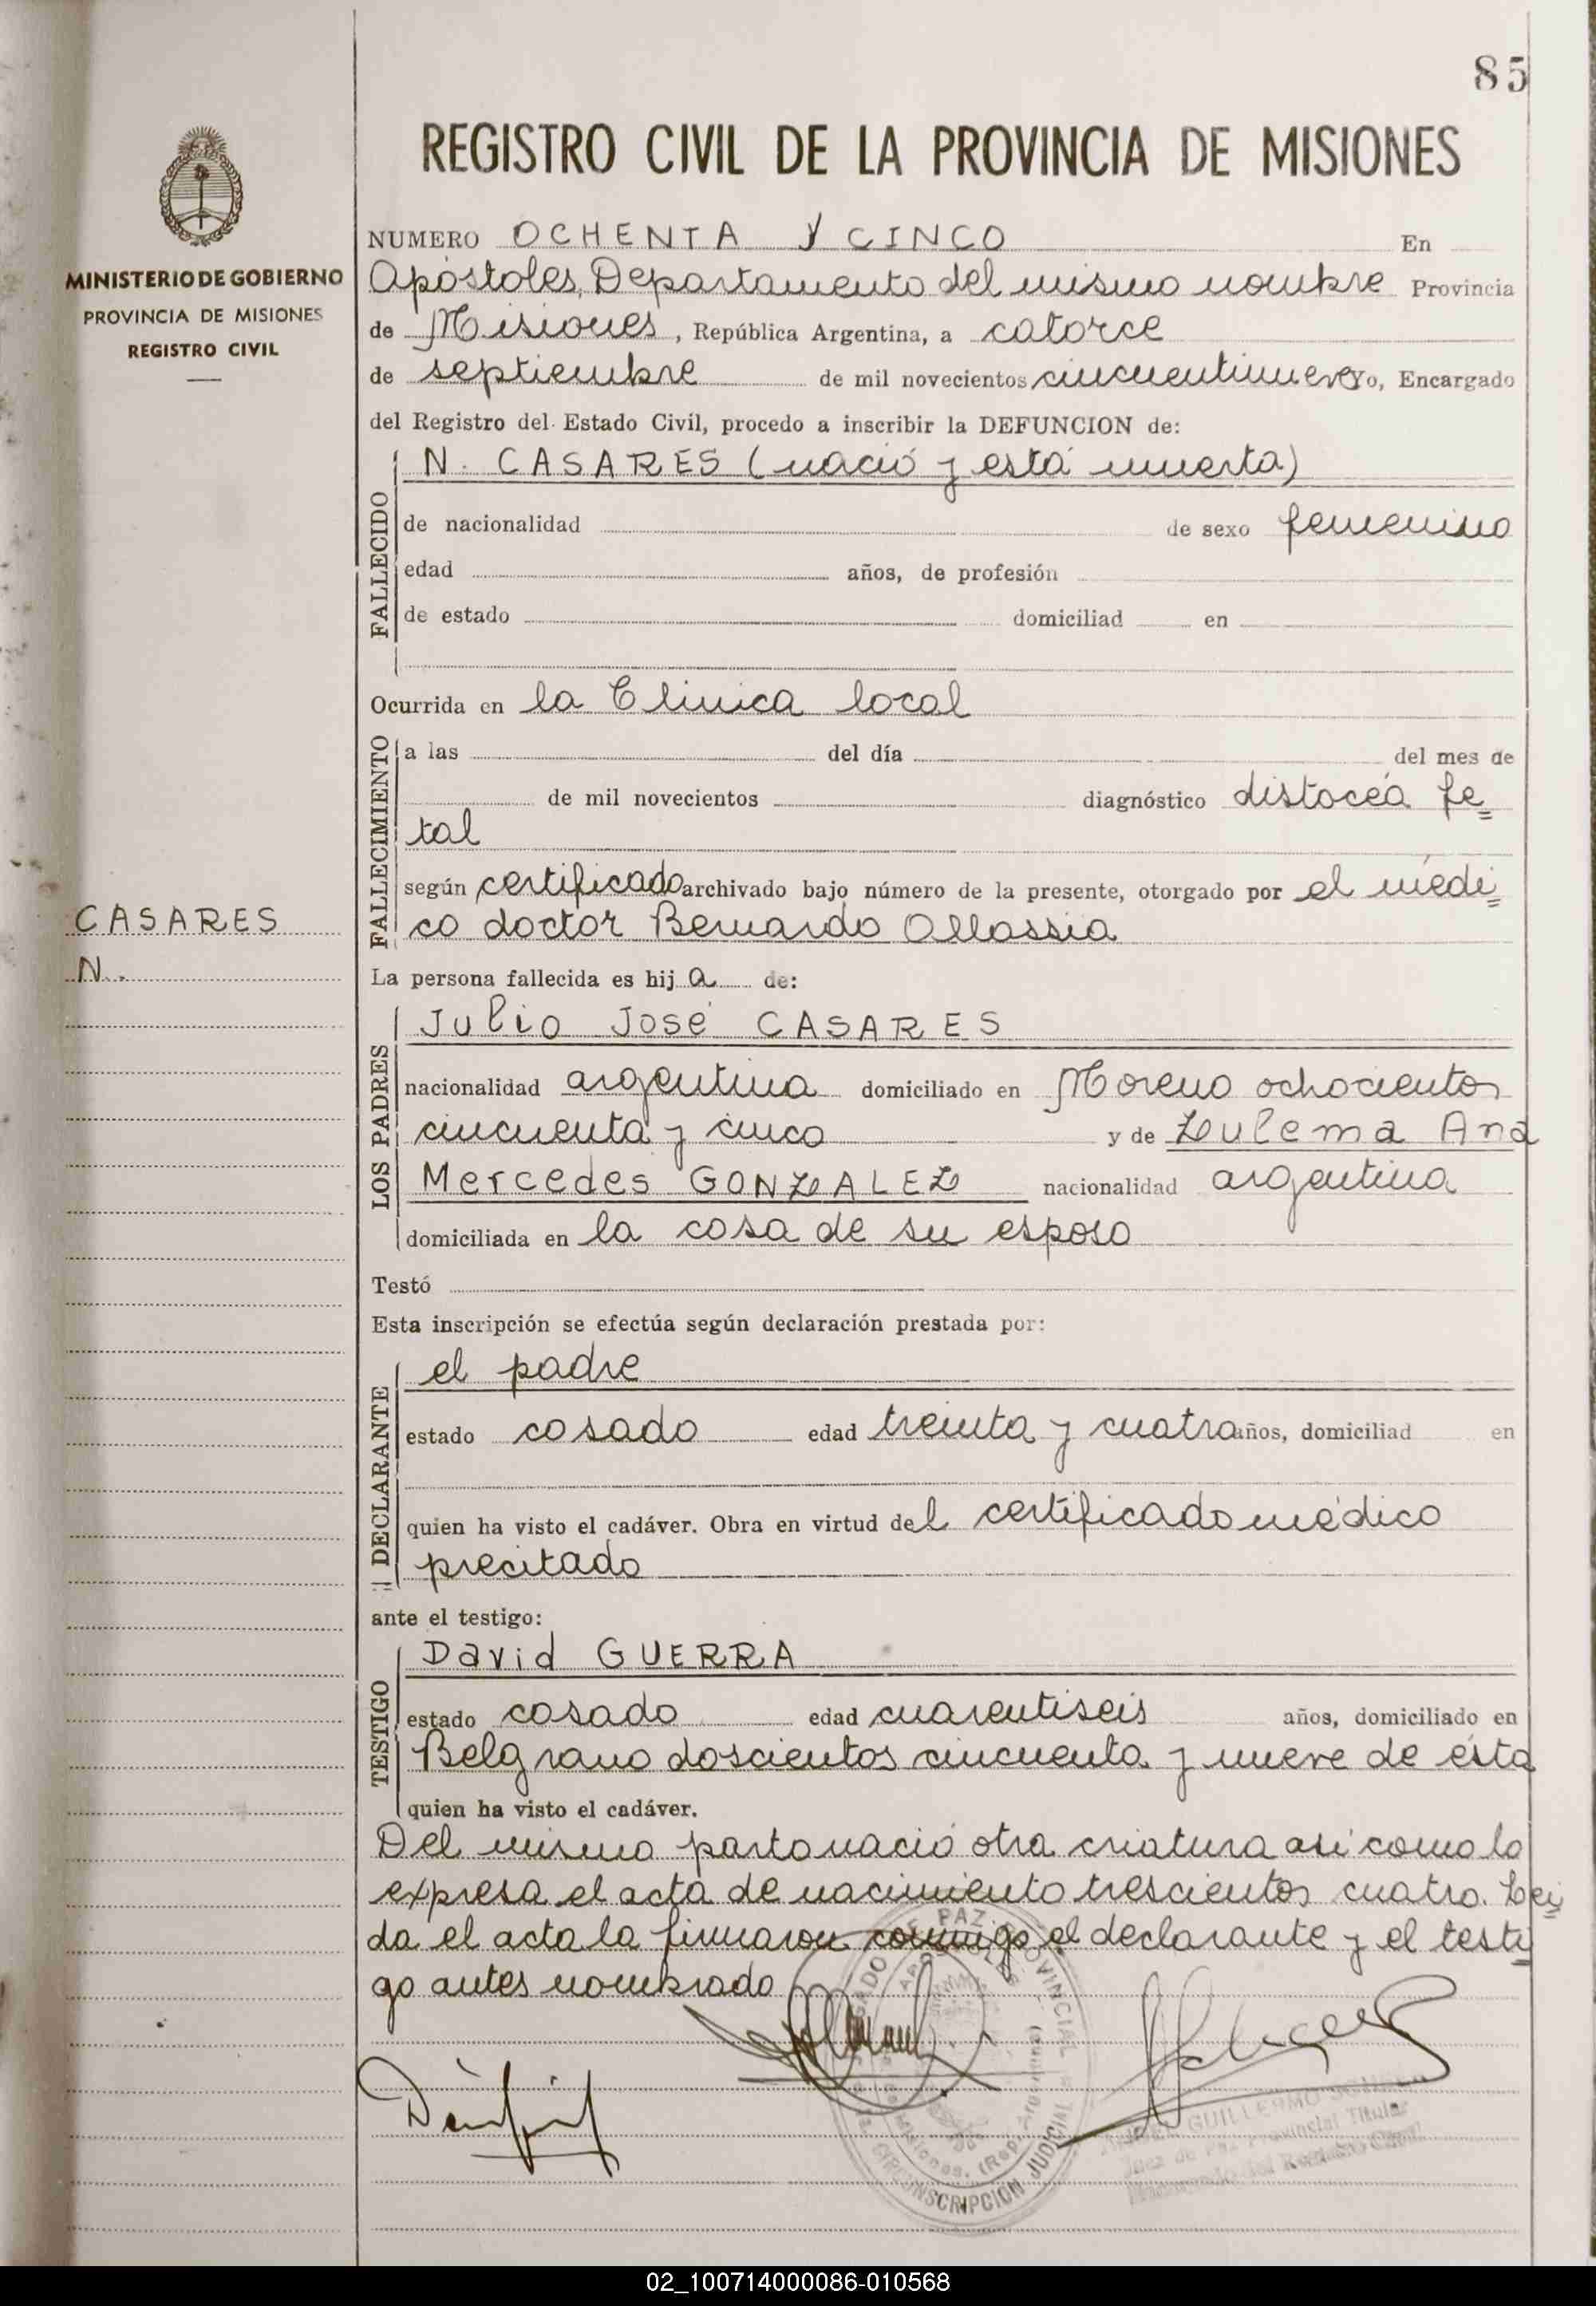 85
REGISTRO CIVIL DE LA PROVINCIA DE MISIONES
MINISTERIO DE GOBIERNO
PROVINCIA DE MISIONES
REGISTRO CIVIL
NUMERO OCHENTA Y CINCO En
Apóstoles, Departamento del mismo nombre Provincia
de Misiones, República Argentina, a catorce
de septiembre de mil novecientos cincuentinueve Yo, Encargado
del Registro del Estado Civil, procedo a inscribir la DEFUNCION de:
FALLECIDO
N. CASARES (nació y está muerta)
de nacionalidad de sexo femenino
edad años, de profesión
de estado domiciliad en
Ocurrida en la Clinica local
FALLECIMIENTO
a las del día del mes de
de mil novecientos diagnóstico distocea fe=
tal
según certificado archivado bajo número de la presente, otorgado por el médi=
co doctor Bernardo Ollassia
CASARES
N.
La persona fallecida es hij a de:
LOS PADRES
Julio José CASARES
nacionalidad argentina domiciliado en Moreno ochocientos
cincuenta y cinco y de Zulema Ana
Mercedes GONZALEZ nacionalidad argentina
domiciliada en la casa de su esposo
Testó
Esta inscripción se efectúa según declaración prestada por:
DECLARANTE
el padre
estado casado edad treinta y cuatro años, domiciliad en
quien ha visto el cadáver. Obra en virtud del certificado médico
precitado
ante el testigo:
TESTIGO
David GUERRA
estado casado edad cuarentiseis años, domiciliado en
Belgrano doscientos cincuenta y nueve de ésta
quien ha visto el cadáver.
Del mismo parto nació otra criatura así como lo
expresa el acta de nacimiento trescientos cuatro. Leí=
da el acta la firmaron conmigo el declarante y el testi=
go antes nombrado
GUILLERMO
Juez de Paz Provincial Titular
Encargado del Registro Civil
CIRCUNSCRIPCION JUDICIAL
02_100714000086-010568